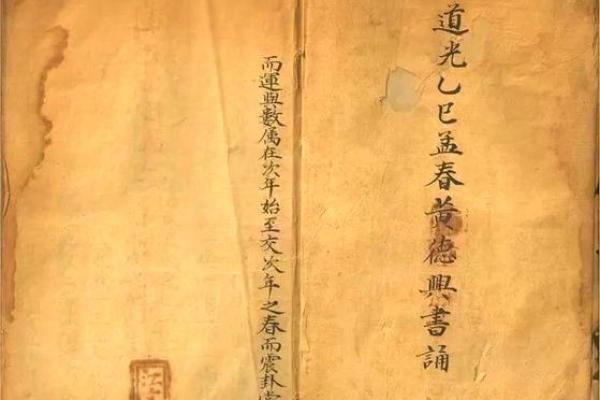 道光乙巳孟春黄德興書誦
而運與數属在次年始至交次年之春而震卦